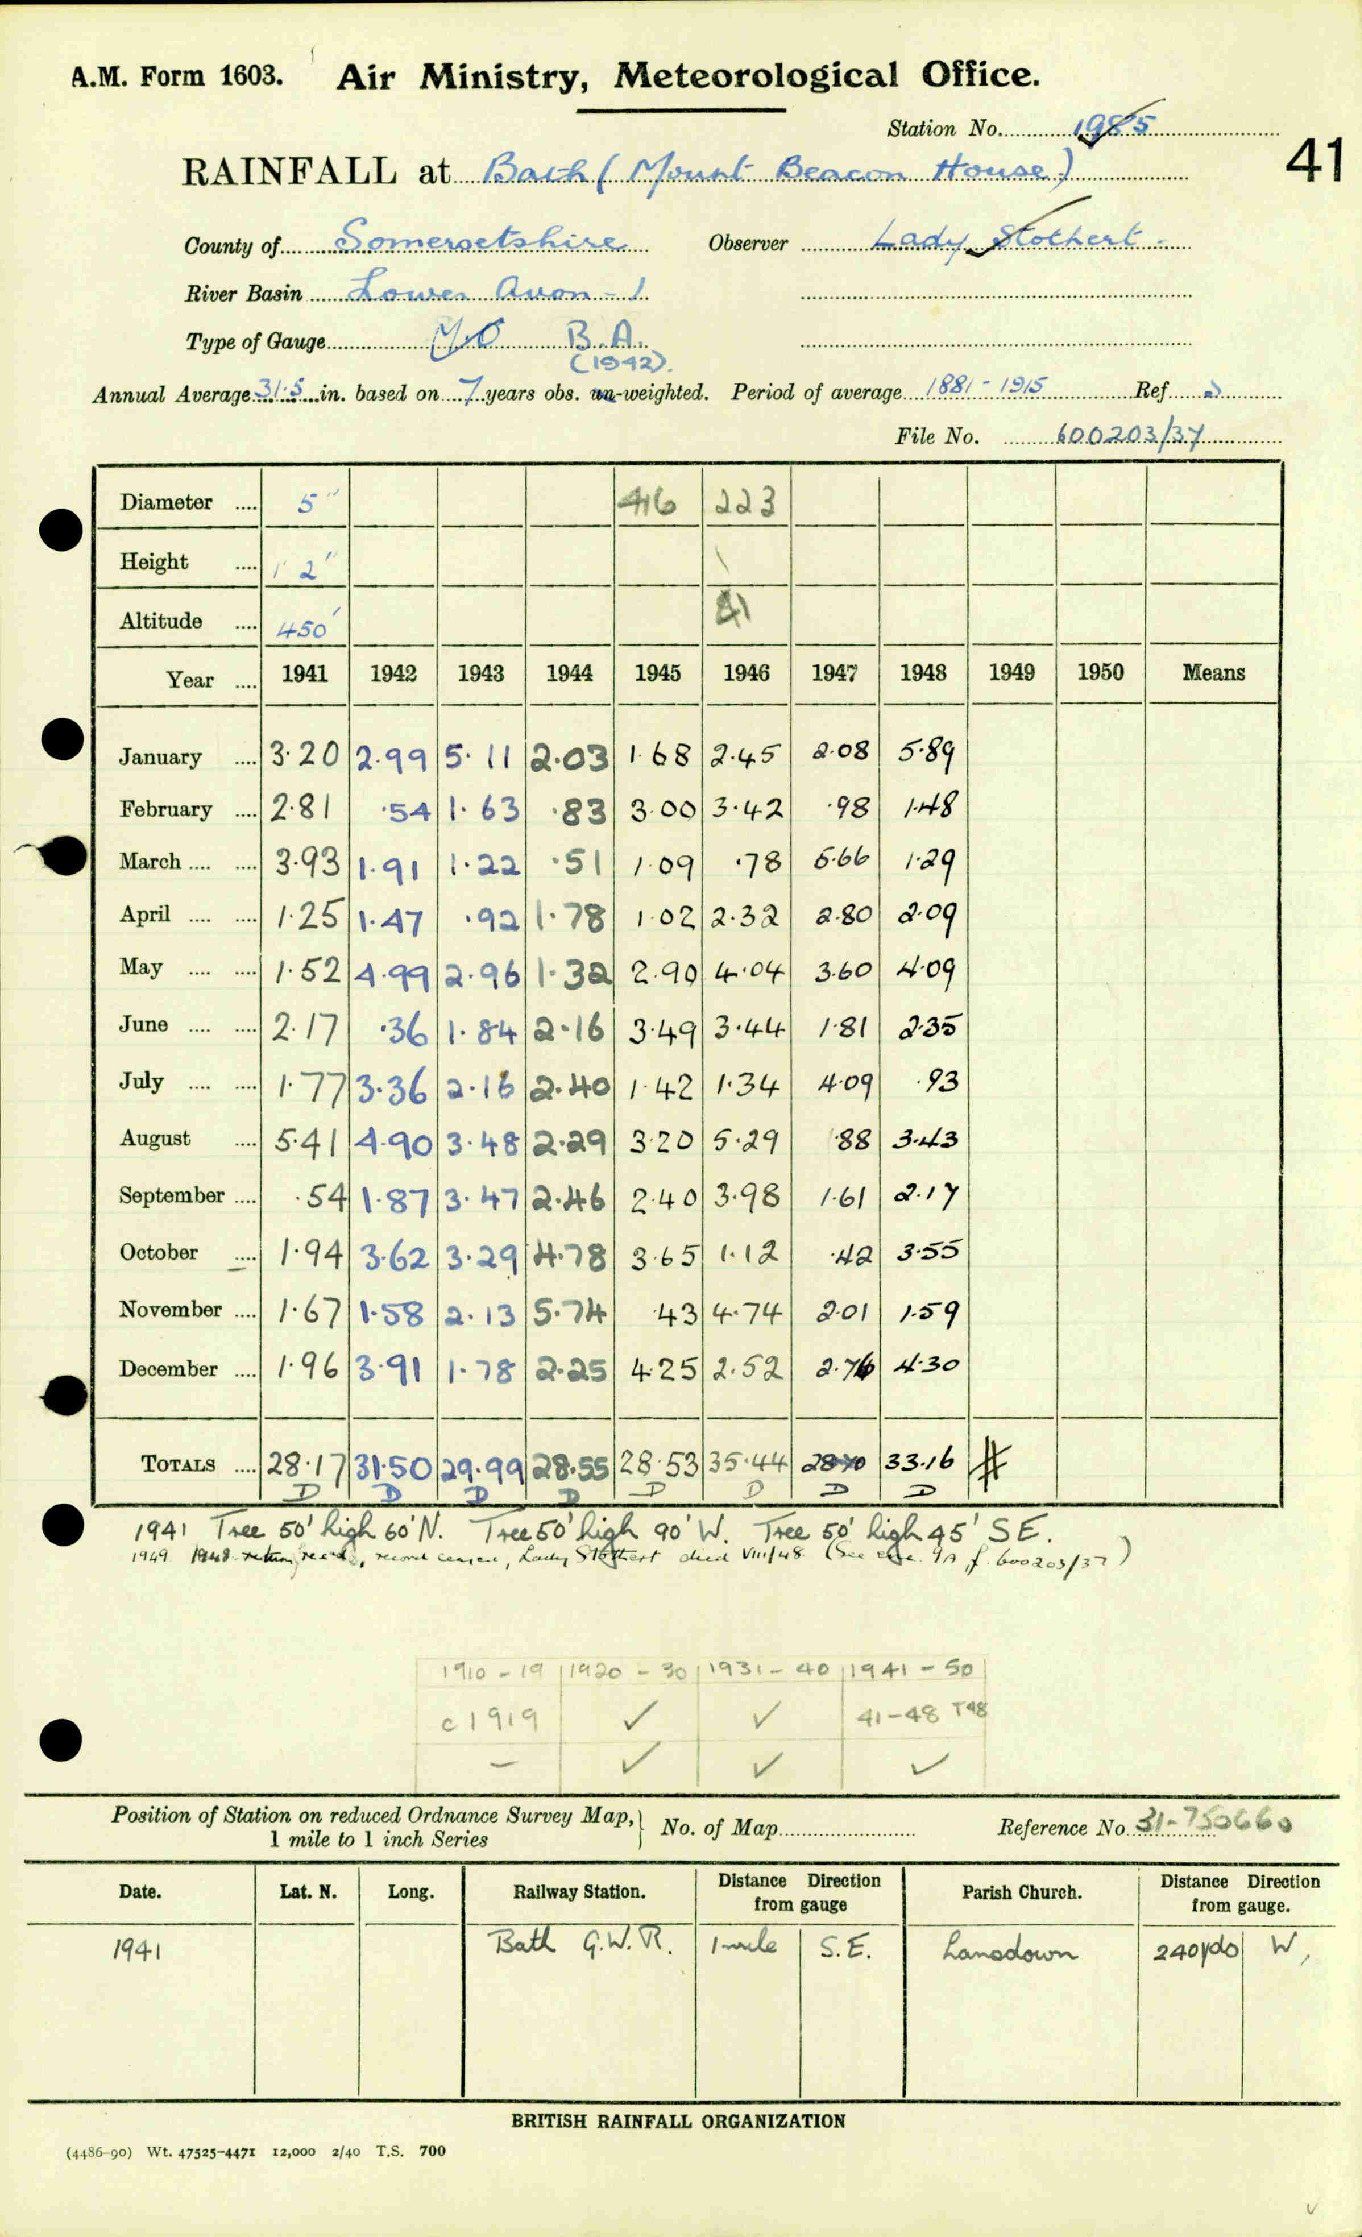 A.M. Form 1603. Air Ministry, Meteorological Office.
Station No. 1985
41
RAINFALL at Bath (Mount Beacon House)
County of Somersetshire Observer Lady Stothert
River Basin Lower Avon - 1
Type of Gauge M.O B.A.
(1942).
Annual Average 31.5 in. based on 7 years obs. un-weighted. Period of average 1881-1915 Ref.
File No. 600203/37
Diameter .... 5" 416 223
Height .... 1' 2"
Altitude .... 450' 41
Year .... 1941 1942 1943 1944 1945 1946 1947 1948 1949 1950 Means
January .... 3.20 2.99 5.11 2.03 1.68 2.45 2.08 5.89
February .... 2.81 .54 1.63 .83 3.00 3.42 .98 1.48
March .... .... 3.93 1.91 1.22 .51 1.09 .78 5.66 1.29
April .... .... 1.25 1.47 .92 1.78 1.02 2.32 2.80 2.09
May .... .... 1.52 4.99 2.96 1.32 2.90 4.04 3.60 4.09
June .... .... 2.17 .36 1.84 2.16 3.49 3.44 1.81 2.35
July .... .... 1.77 3.36 2.16 2.40 1.42 1.34 4.09 .93
August .... 5.41 4.90 3.48 2.29 3.20 5.29 .88 3.43
September .... .54 1.87 3.47 2.46 2.40 3.98 1.61 2.17
October .... 1.94 3.62 3.29 4.78 3.65 1.12 .42 3.55
November .... 1.67 1.58 2.13 5.74 .43 4.74 2.01 1.59
December .... 1.96 3.91 1.78 2.25 4.25 2.52 2.76 4.30
TOTALS .... 28.17 31.50 29.99 28.55 28.53 35.44 28.70 33.16 #
D D D D D D D D
1941 Tree 50' high 60' N. Tree 50' high 90' W. Tree 50' high 45' SE.
1949 1948 return recd, record ceased, Lady Stothert died VIII/48 (See enc. 9A f. 600203/37)
1910-19 1920-30 1931-40 1941-50
c 1919 ✓ ✓ 41-48 T48
- ✓ ✓ ✓
Position of Station on reduced Ordnance Survey Map, 1 mile to 1 inch Series } No. of Map Reference No. 31-750660
Date. Lat. N. Long. Railway Station. Distance Direction from gauge Parish Church. Distance Direction from gauge.
1941 Bath G.W.R. 1 mile S.E. Lansdown 240 yds W,
BRITISH RAINFALL ORGANIZATION
(4486-90) Wt. 47525-4471 12,000 2/40 T.S. 700